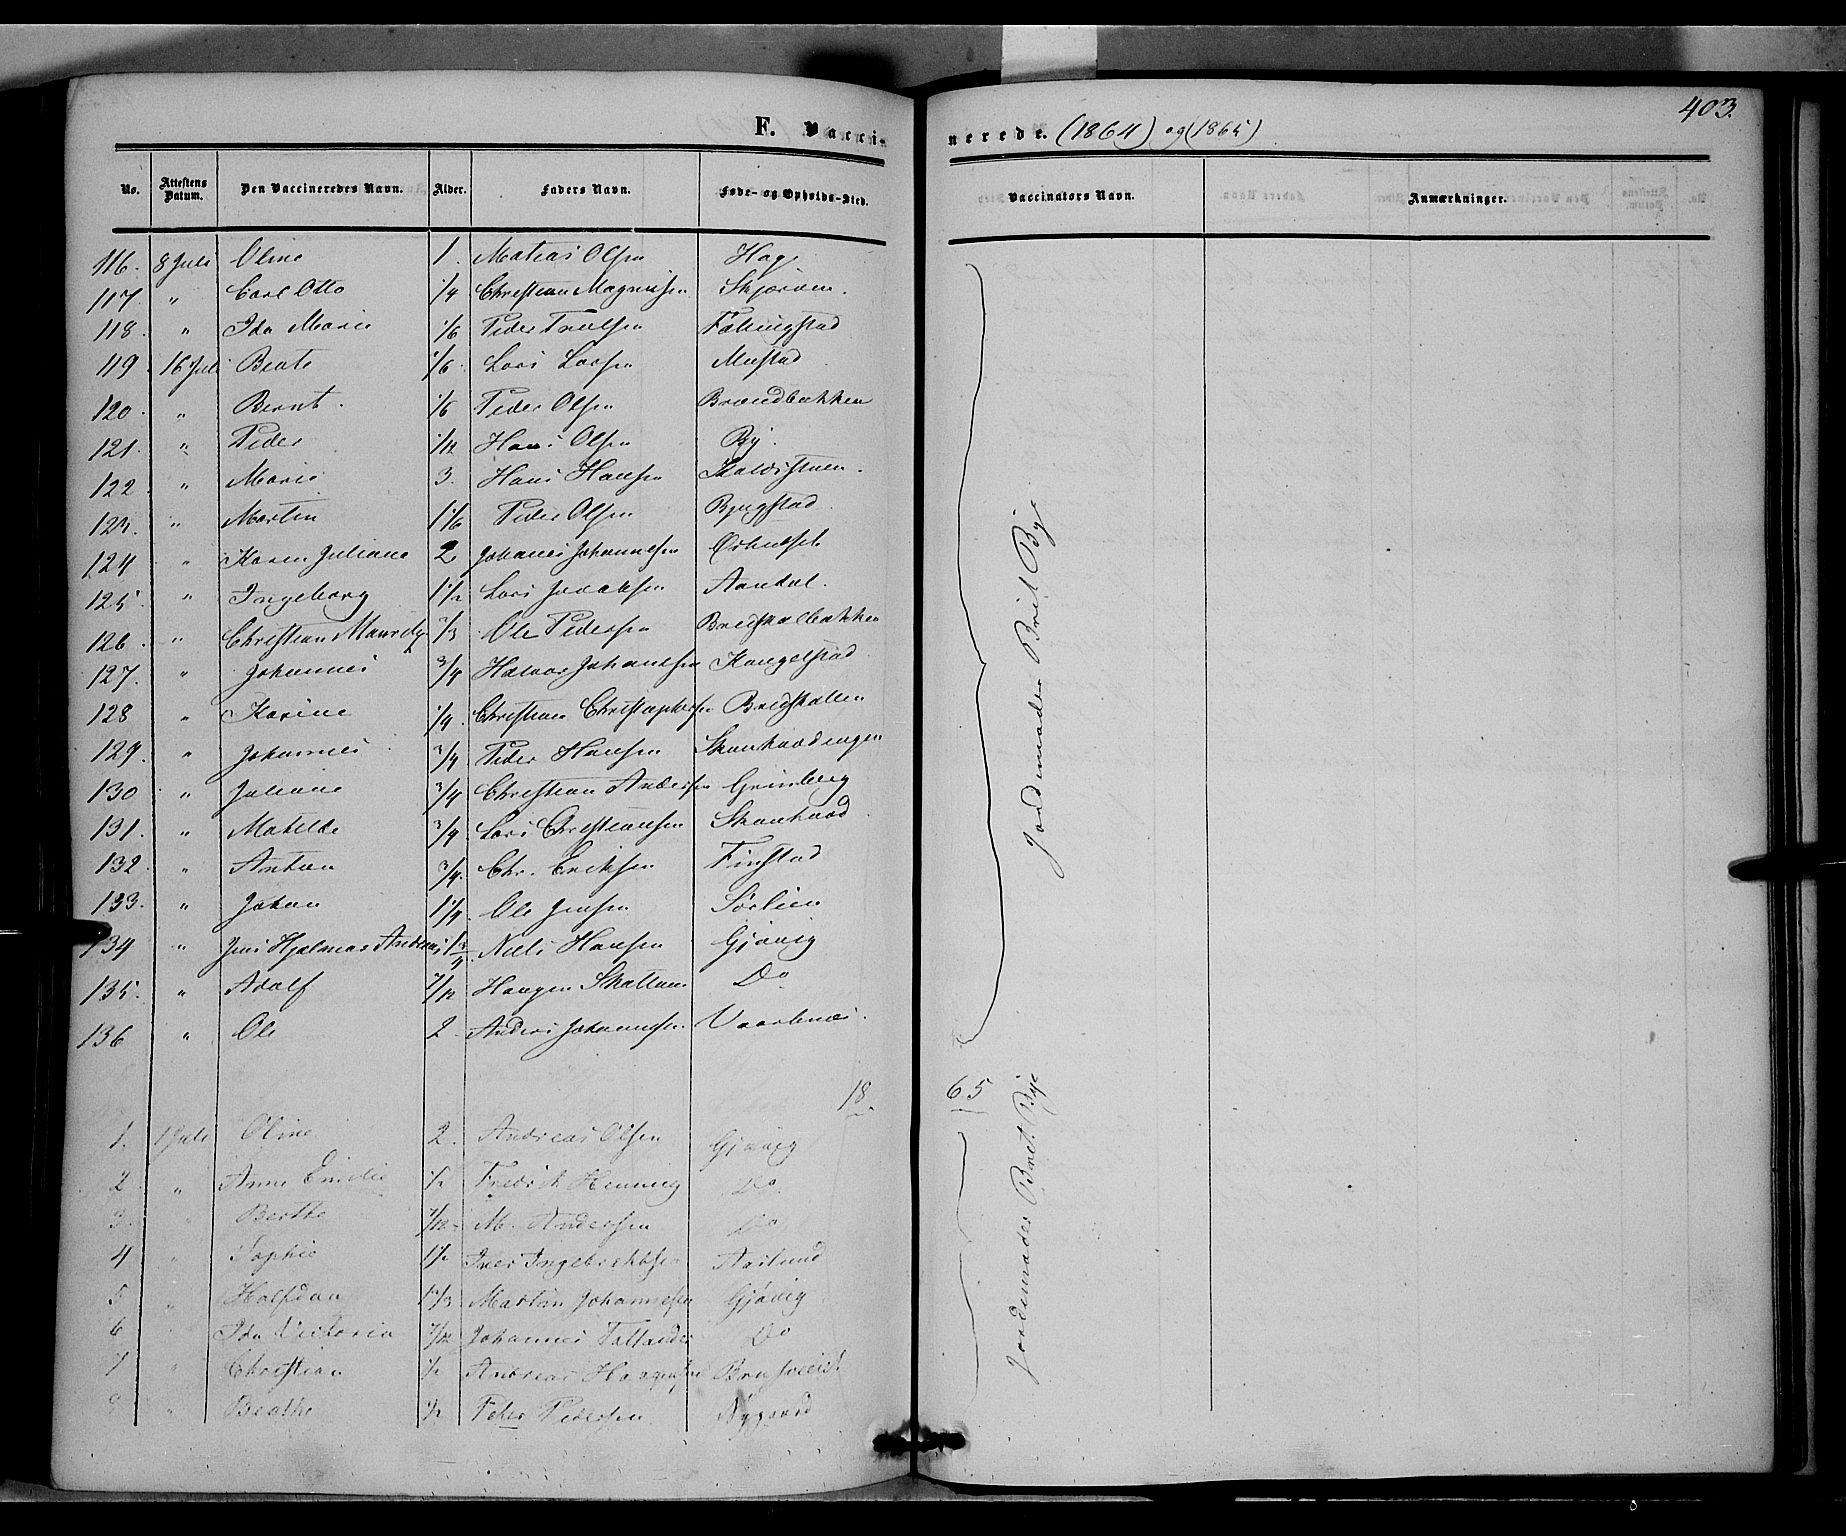 403.
F. Vaccinerede. (1864) og (1865)
No. Attestens Datum. Den Vaccineredes Navn. Alder. Faders Navn. Føde- og Opholds-Sted. Vaccinators Navn. Anmærkninger.
116. 8 Juli Oline 1. Matias Olsen Hage
117 " Carl Otto 1/4 Christian Magnussen Skjerven.
118. " Ida Marie 1/6 Peder Truelsen
119 16 Juli Beate 1/6. Lars Larsen Mustad
120. " Bernt. 1/6 Peder Olsen Brændbakken
121. " Peder 1/12 Hans Olsen By.
122 " Marie 3. Hans Hansen
123. " Martin 1 1/6 Peder Olsen Bjugstad
124 " Karen Juliane 2 Johanes Johannesen
125. " Ingeborg 1 1/2 Lars Jacobsen Aandal.
126. " Christian Mauritz 2/3 Ole Pedersen Bredskalbakken
127. " Johannes 3/4 Halvor Johansen Kongelstad
128 " Karine 1/4. Christian Christophersen Bredskallen
129. " Johannes 3/4 Peder Hansen
130 " Juliane 3/4 Christian Andersen Grimberg
131. " Matilde 3/4 Lars Christiansen
132 " Anton 3/4. Chr. Eriksen Finstad
133. " Johan 1 1/4 Ole Jensen Sørlien
134 " Jens Hjalmar Andreas 1 3/4. Niels Hansen Gjøvig
135. " Adolf 7/12 Haagen Skattum Do
136 " Ole 2 Anders Johannesen. Vaarlenæs.
Jordemoder Brit Bye
18 65
1. 1 Juli Oline 2. Andreas Olsen Gjøvig
2 " Anne Emilie 1/2 Fredrik Henning Do
3. " Berthe 7/12 M. Andersen Do
4 " Sophie 1 1/2 Iver Ingebrektsen Aaslund
5 " Halfdan 1 2/3 Martin Johannesen Gjøvig
6 " Ida Victoria 7/12 Johannes Do
7 " Christian 1/2 Andreas Haagensen
8 " Beathe 1/2 Peder Pedersen Nygaard
Jordemoder Brit Bye